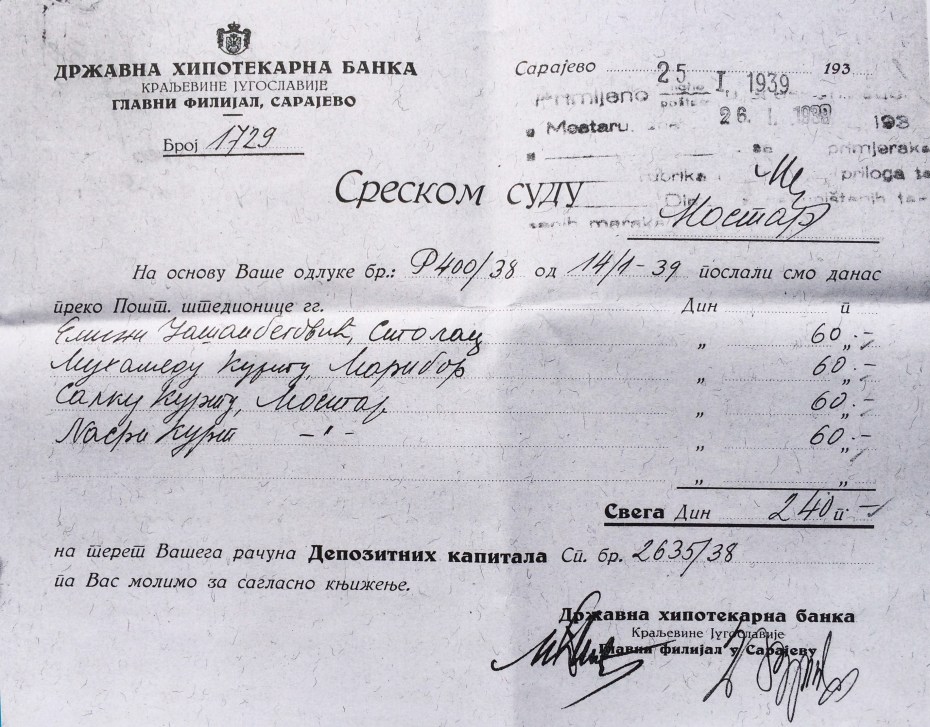 ДРЖАВНА ХИПОТЕКАРНА БАНКА
КРАЉЕВИНЕ ЈУГОСЛАВИЈЕ
ГЛАВНИ ФИЛИЈАЛ, САРАЈЕВО
Број 1729
Сарајево 25 I 1939 193
Primljeno
pošte
Mostaru 26. I. 1939 193
primjeraka
rubrika priloga
Среском суду
Мостар
На основу Ваше одлуке бр.: Р400/38 од 14/1-39 послали смо данас
преко Пошт. штедионице гг. Дин п
Столац „ 60.- „
Мухамеду Курту, Марибор „ 60.- „
Салку Курту, Мостар „ 60.- „
Насри Курт -"- „ 60.- „
„ „
Свега Дин 240 п -
на терет Вашега рачуна Депозитних капитала Сп. бр. 2635/38
па Вас молимо за сагласно књижење.
Државна хипотекарна банка
Краљевине Југославије
Главни филијал у Сарајеву